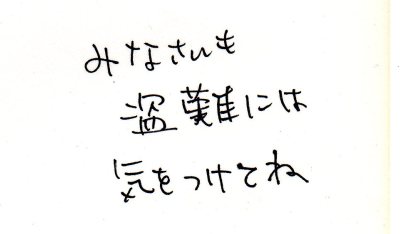 みなさんも
盗難には
気をつけてね